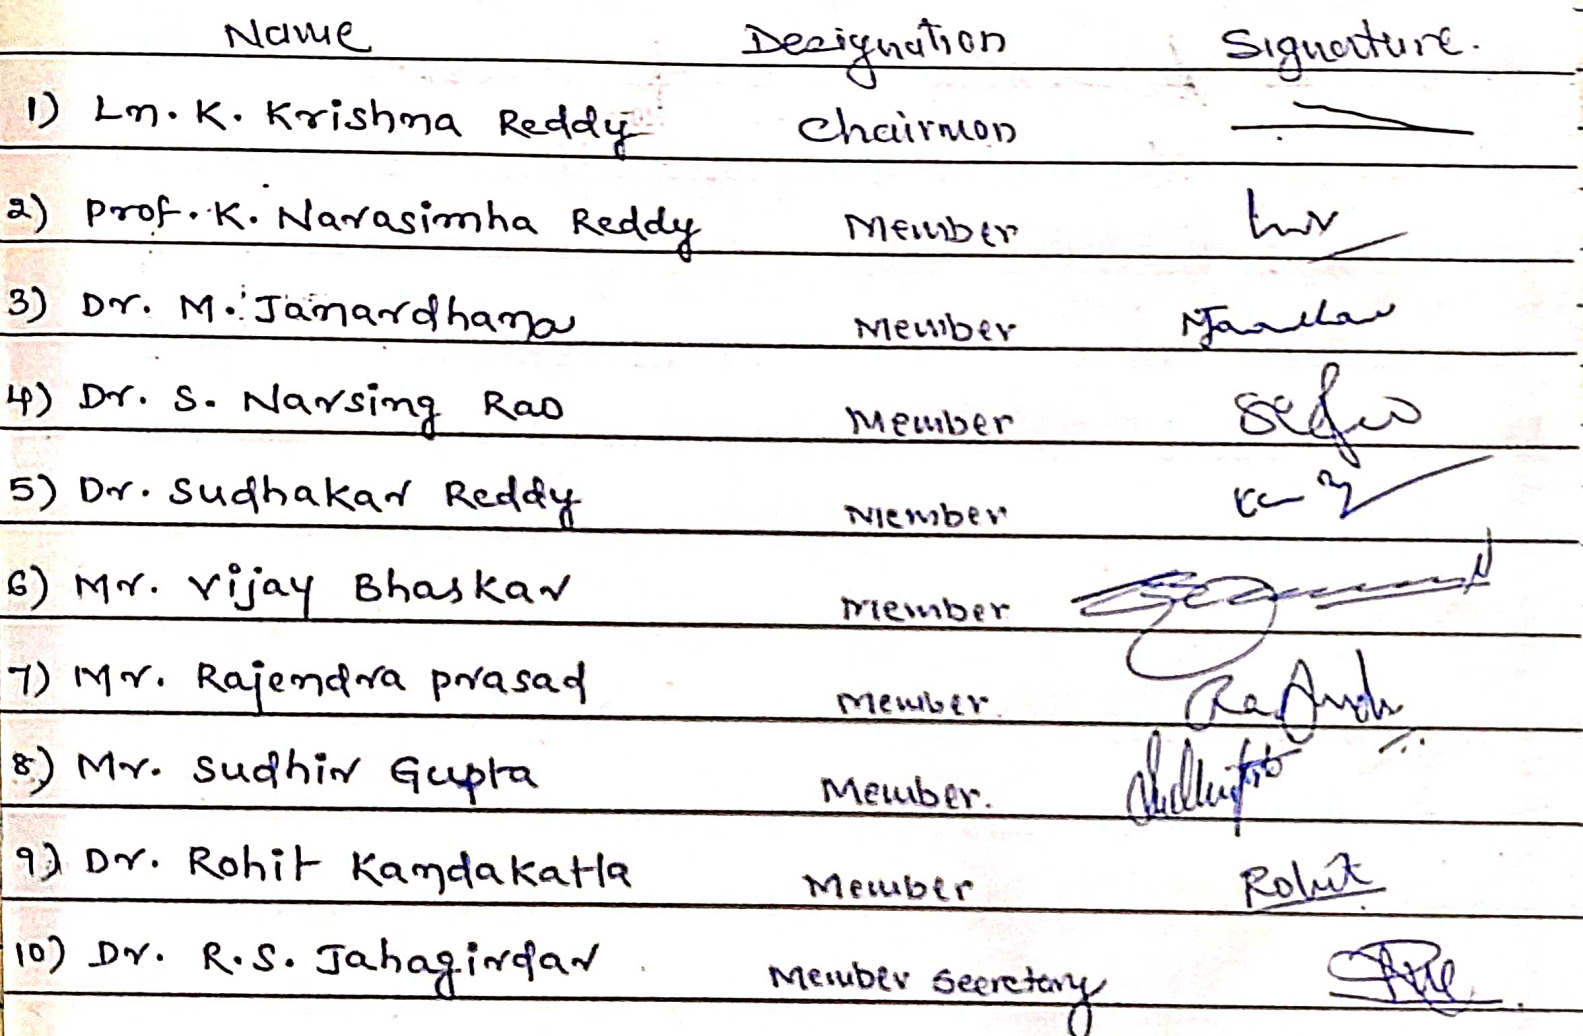 Name Designation Signature.
1) Ln. K. Krishna Reddy Chairman
2) Prof. K. Narasimha Reddy Member
3) Dr. M. Janardhana Member
4) Dr. S. Narsing Rao Member
5) Dr. Sudhakar Reddy Member
6) Mr. Vijay Bhaskar Member
7) Mr. Rajendra prasad Member.
8) Mr. Sudhir Gupta Member.
9) Dr. Rohit Kandakatla Member Rohit
10) Dr. R.S. Jahagirdar Member Secretary